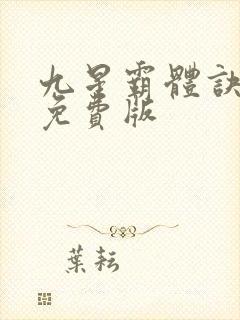 九星霸體訣
免費版
葉耘